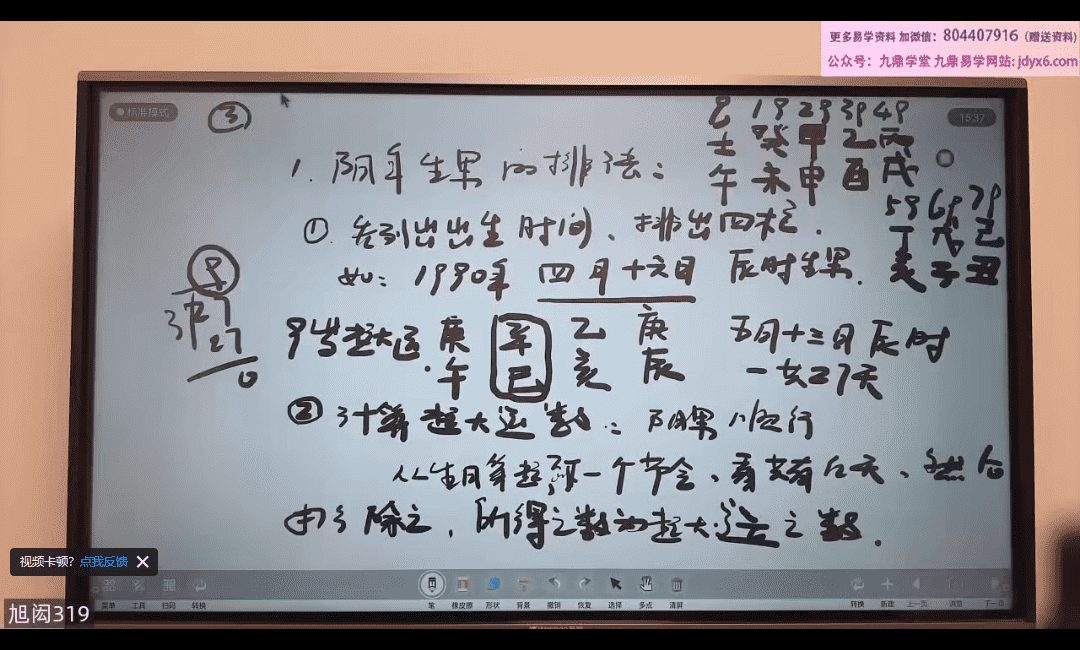 更多易学资料 加微信：804407916（赠送资料）
公众号：九鼎学堂 九鼎易学网站: jdyx6.com
标准模式
15:37
③
9 19 29 39 49
壬 癸 甲 乙 丙
午 未 申 酉 戌
59 69 79
丁 戊 己
亥 子 丑
1. 阳年生男的排法：
① 先列出出生时间、排出四柱.
如：1990年 四月十六日 辰时生男.
9
3 27
27
0
9岁起大运. 庚 辛 乙 庚
午 巳 亥 辰
五月十三日辰时
一共27天
② 计算起大运数：阳男顺行
从生日算起到下一个节令、看共有几天、然后
由3除之，所得之数为起大运之数.
视频卡顿? 点我反馈 ✕
菜单 工具 扫码 转换 笔 橡皮擦 形状 背景 撤销 恢复 选择 多点 清屏 转换 新建 上一页 浏览 下一页
旭闳319